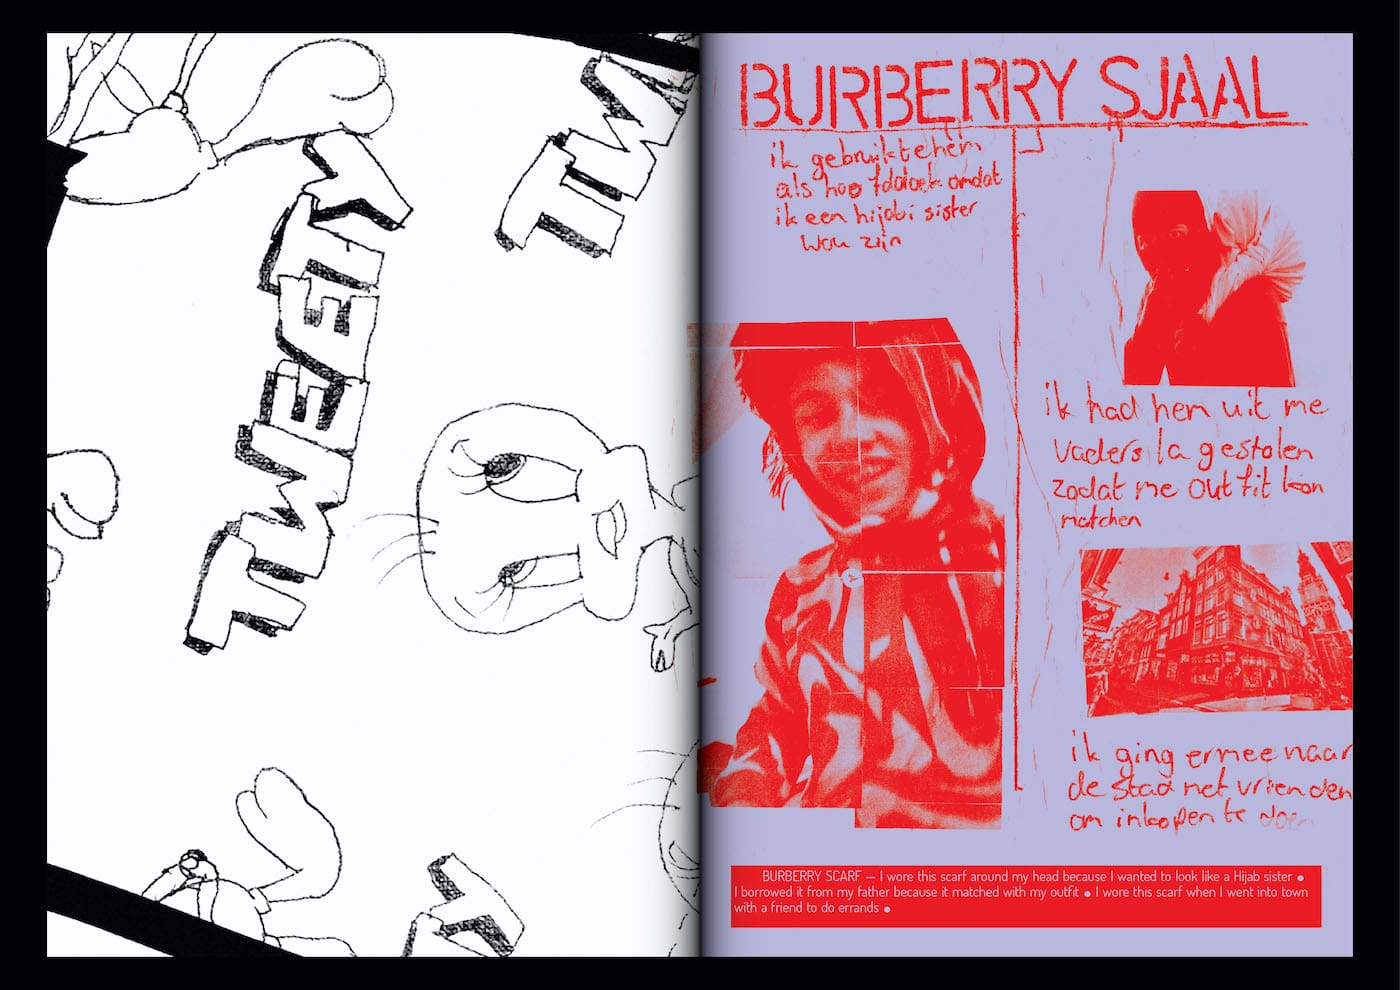 TWEETY
TW
T
BURBERRY SJAAL
ik gebruikte hem
als hoofddoek omdat
ik een hijabi sister
wou zijn
ik had hem uit me
vaders la gestolen
zodat me outfit kon
matchen
ik ging ermee naar
de stad met vrienden
om inkopen te doen
BURBERRY SCARF — I wore this scarf around my head because I wanted to look like a Hijab sister ●
I borrowed it from my father because it matched with my outfit ● I wore this scarf when I went into town
with a friend to do errands ●